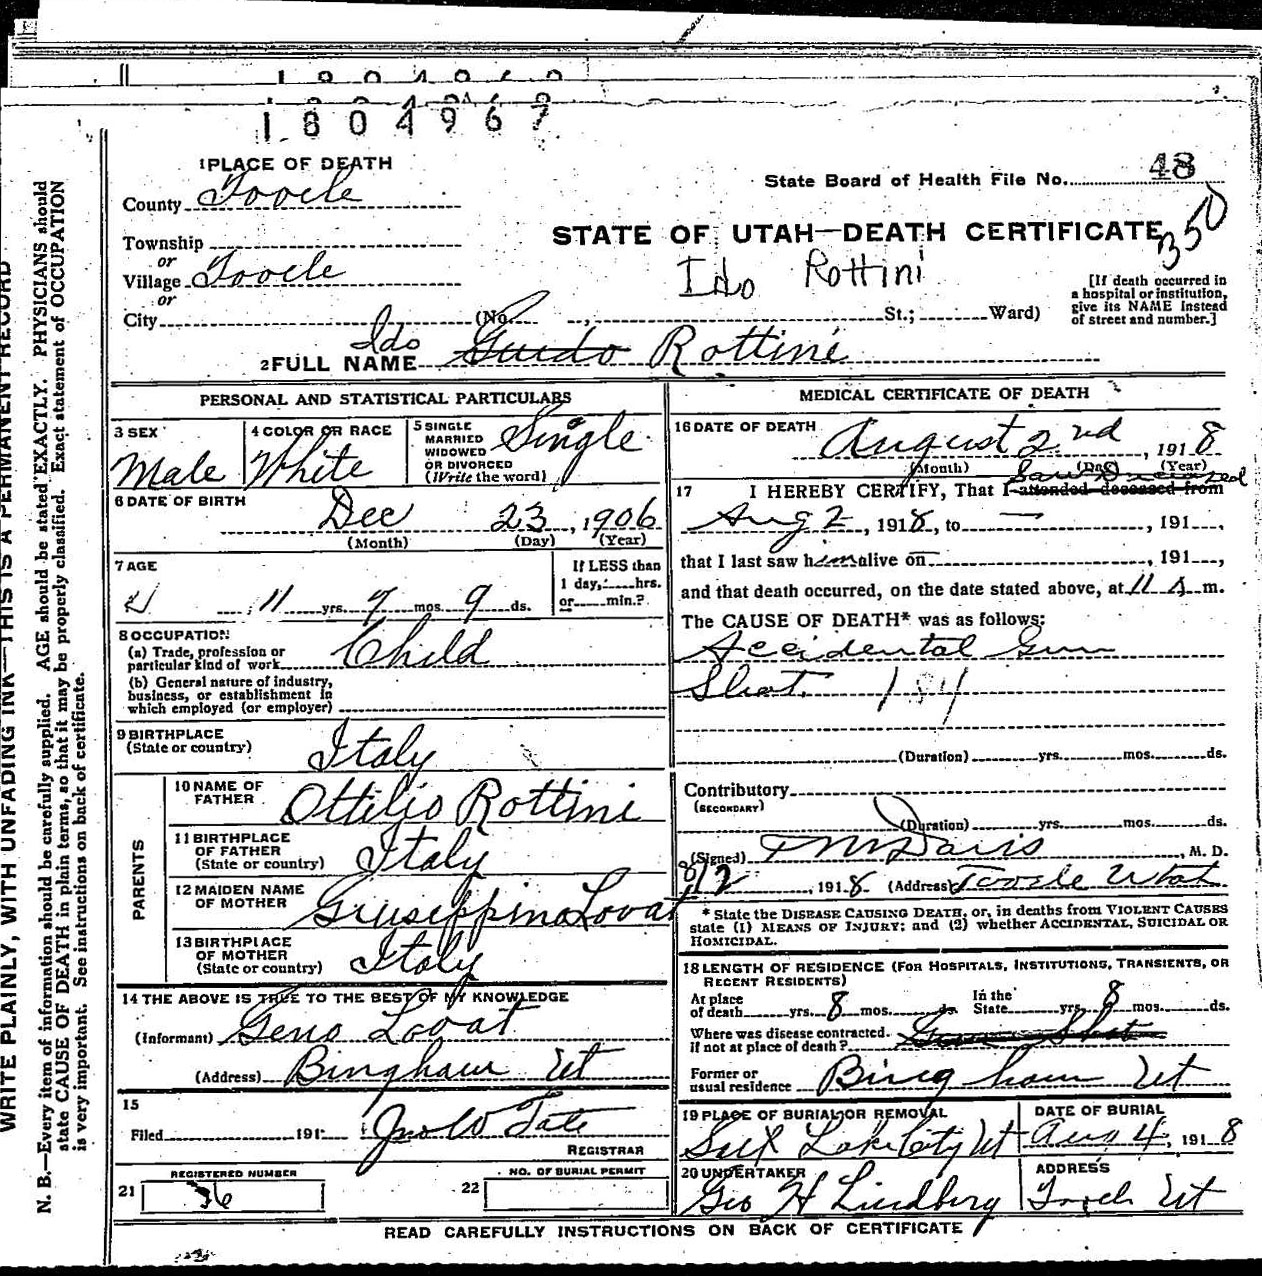 1804967
1 PLACE OF DEATH
County Tooele
State Board of Health File No. 48
350
Township
or
Village Tooele
or
City (No. , St.; Ward)
STATE OF UTAH—DEATH CERTIFICATE
Ido Rottini
[If death occurred in
a hospital or institution,
give its NAME instead
of street and number.]
Ido
2 FULL NAME Guido Rottini
PERSONAL AND STATISTICAL PARTICULARS
3 SEX
Male
4 COLOR OR RACE
White
5 SINGLE
MARRIED
WIDOWED
OR DIVORCED
(Write the word)
Single
6 DATE OF BIRTH
Dec 23, 1906
(Month) (Day) (Year)
7 AGE
11 yrs. 7 mos. 9 ds.
If LESS than
1 day, hrs.
or min.?
8 OCCUPATION
(a) Trade, profession or
particular kind of work Child
(b) General nature of industry,
business, or establishment in
which employed (or employer)
9 BIRTHPLACE
(State or country) Italy
PARENTS
10 NAME OF
FATHER Ottilio Rottini
11 BIRTHPLACE
OF FATHER
(State or country) Italy
12 MAIDEN NAME
OF MOTHER Giuseppina Lovat
13 BIRTHPLACE
OF MOTHER
(State or country) Italy
14 THE ABOVE IS TRUE TO THE BEST OF MY KNOWLEDGE
(Informant) Geno Lovat
(Address) Bingham Ut
15
Filed 191 Jno W Tate
REGISTRAR
REGISTERED NUMBER
21 36
NO. OF BURIAL PERMIT
22
MEDICAL CERTIFICATE OF DEATH
16 DATE OF DEATH
August 2nd, 1918
(Month) (Day) (Year)
Saw Deceased
17 I HEREBY CERTIFY, That I attended deceased from
Aug 2, 1918, to — , 191 ,
that I last saw him alive on , 191 ,
and that death occurred, on the date stated above, at 11 A m.
The CAUSE OF DEATH* was as follows:
Accidental Gun
Shot. 184
(Duration) yrs. mos. ds.
Contributory
(SECONDARY)
(Duration) yrs. mos. ds.
(Signed) T M Davis, M. D.
8/2, 1918 (Address) Tooele Utah
* State the DISEASE CAUSING DEATH, or, in deaths from VIOLENT CAUSES
state (1) MEANS OF INJURY; and (2) whether ACCIDENTAL, SUICIDAL OR
HOMICIDAL.
18 LENGTH OF RESIDENCE (FOR HOSPITALS, INSTITUTIONS, TRANSIENTS, OR
RECENT RESIDENTS)
At place
of death yrs. 8 mos. ds.
In the
State yrs. 8 mos. ds.
Where was disease contracted
if not at place of death? Gun Shot
Former or
usual residence Bingham Ut
19 PLACE OF BURIAL OR REMOVAL
Salt Lake City Ut
DATE OF BURIAL
Aug 4, 1918
20 UNDERTAKER
Geo H Lindberg
ADDRESS
Tooele Ut
READ CAREFULLY INSTRUCTIONS ON BACK OF CERTIFICATE
WRITE PLAINLY, WITH UNFADING INK—THIS IS A PERMANENT RECORD
N. B.—Every item of information should be carefully supplied. AGE should be stated EXACTLY. PHYSICIANS should
state CAUSE OF DEATH in plain terms, so that it may be properly classified. Exact statement of OCCUPATION
is very important. See instructions on back of certificate.